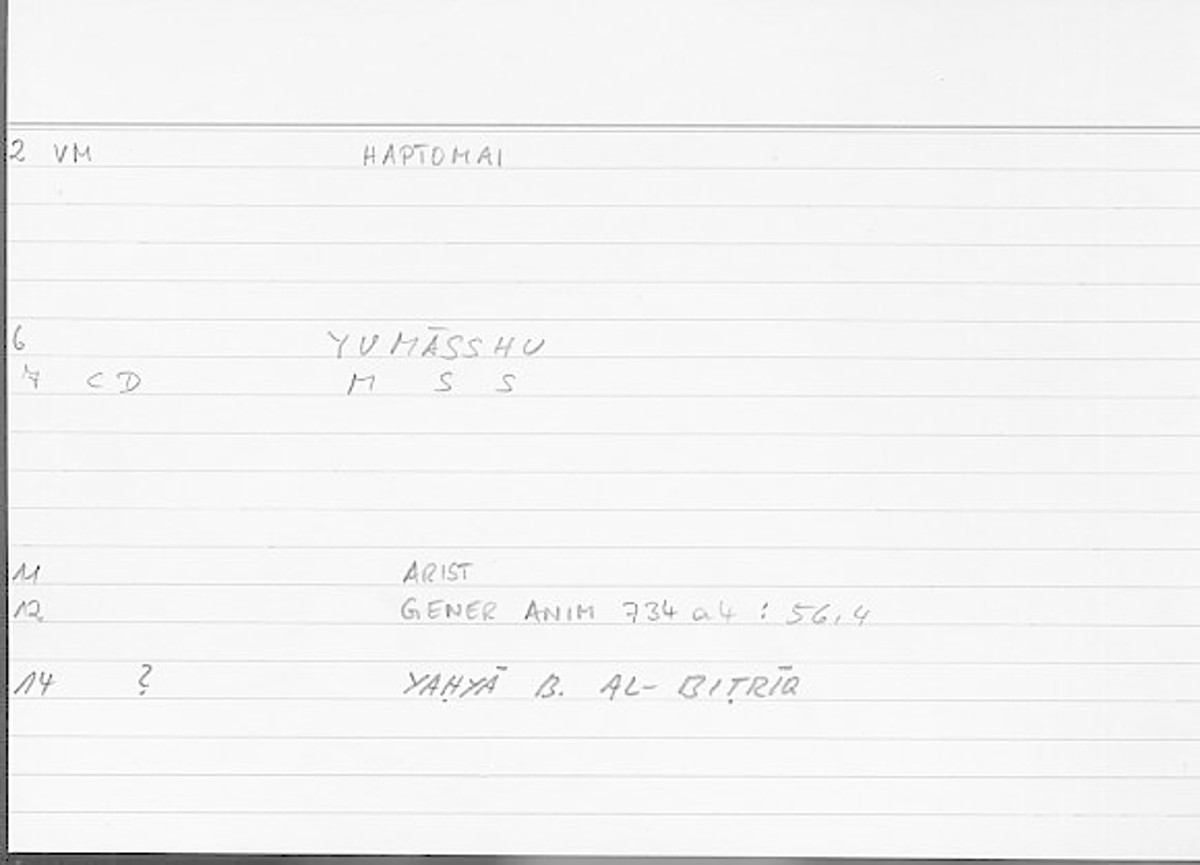 2 VM HAPTOMAI
6 YUMĀSSHU
7 CD M S S
11 ARIST
12 GENER ANIM 734 a 4 : 56,4
14 ? YAḤYĀ B. AL-BIṬRĪQ